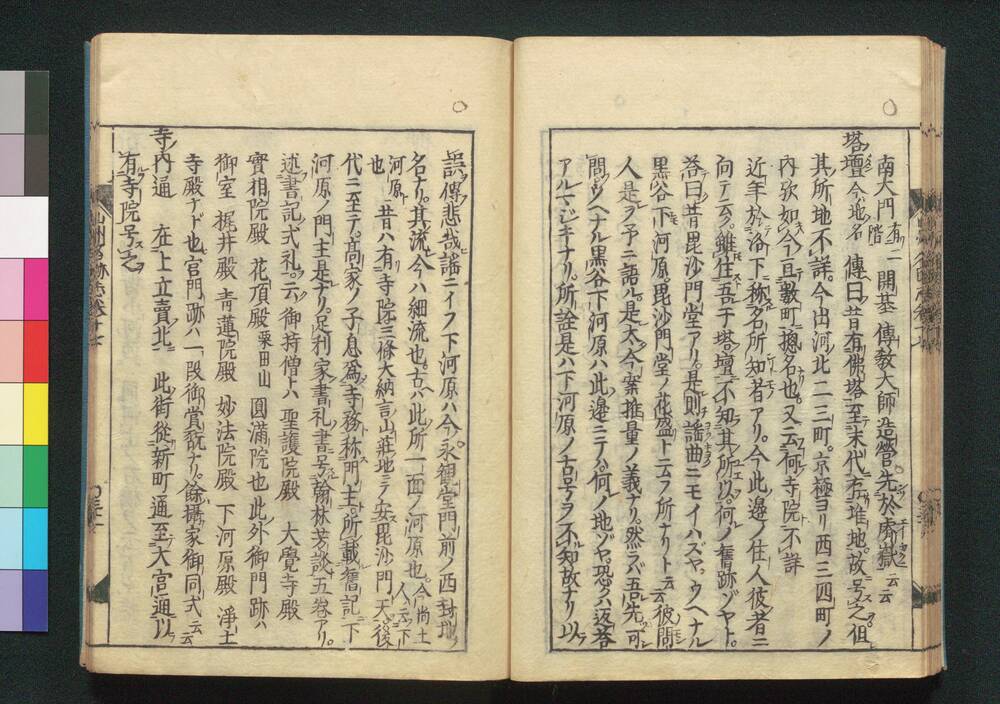 南大門 有二階 開基 傳教大師 造營先於虜嶽云云
塔壇今地名 傳曰昔有佛塔至末代有堆地故号之但
其所地不詳今出河北二三町京極ヨリ西三四町ノ
内欤如今亘數町摠名也又云何寺院不詳
近年於洛下称名所知者アリ今此邊ノ住人彼者ニ
向テ云ク雖住吾于塔壇不知其所以何ノ舊跡ゾヤト
荅曰昔毘沙門堂アリ是則謡曲ニモイハズヤウヘナル
黒谷下河原毘沙門堂ノ花盛ト云フ所ナリト云云彼聞
人是ヲ予ニ語ル是太今案推量ノ義ナリ然ラバ吾先可
問ウヘナル黒谷下河原ハ此邊ニテ何ノ地ゾヤ恐クハ返荅
アルマジキナリ所詮是ハ下河原ノ古号ヲ不知故ナリ以
誤傳悲哉謡ニイフ下河原ハ今永観堂門前ノ西封地ノ
名ナリ其流今ハ細流也古ハ此所一面ノ河原也今尚土人云下
河原也 昔ハ有寺院三條大納言山荘地ニテ安毘沙門天後
代ニ至テ高家ノ子息爲寺務称門主所載舊記下
河原ノ門主是ナリ足利家書礼書号翰林芳談五巻アリ
述書記式礼云御持僧トハ聖護院殿 大覺寺殿
實相院殿 花頂殿粟田山 圓滿院也此外御門跡ハ
御室 梶井殿 青蓮院殿 妙法院殿 下河原殿 淨土
寺殿ナド也宮門跡ハ一段御賞翫ナリ餘攝家御同式云云
寺内通 在上立賣北 此街從新町通至大宮通以
有寺院号之